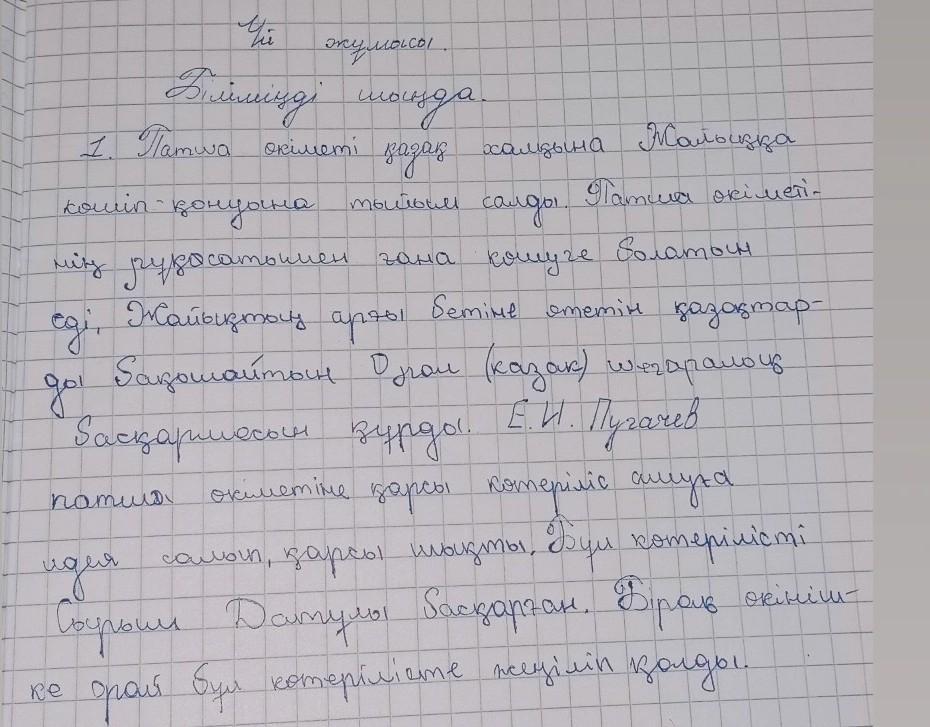 Үй жұмысы.
Біліміңді шыңда.
1. Патша өкіметі қазақ халқына Жайыққа
көшіп-қонуына тыйым салды. Патша өкіметі-
нің рұқсатымен ғана көшуге болатын
еді, Жайықтың арғы бетіне өтетін қазақтар-
ды бақылайтын Орал (казак) шегаралық
басқармасын құрды. Е.И. Пугачев
патша өкіметіне қарсы көтеріліс ашуға
идея салып, қарсы шықты. Бұл көтерілісті
Сырым Датұлы басқарған. Бірақ өкініш-
ке орай бұл көтерілісте жеңіліп қалды.